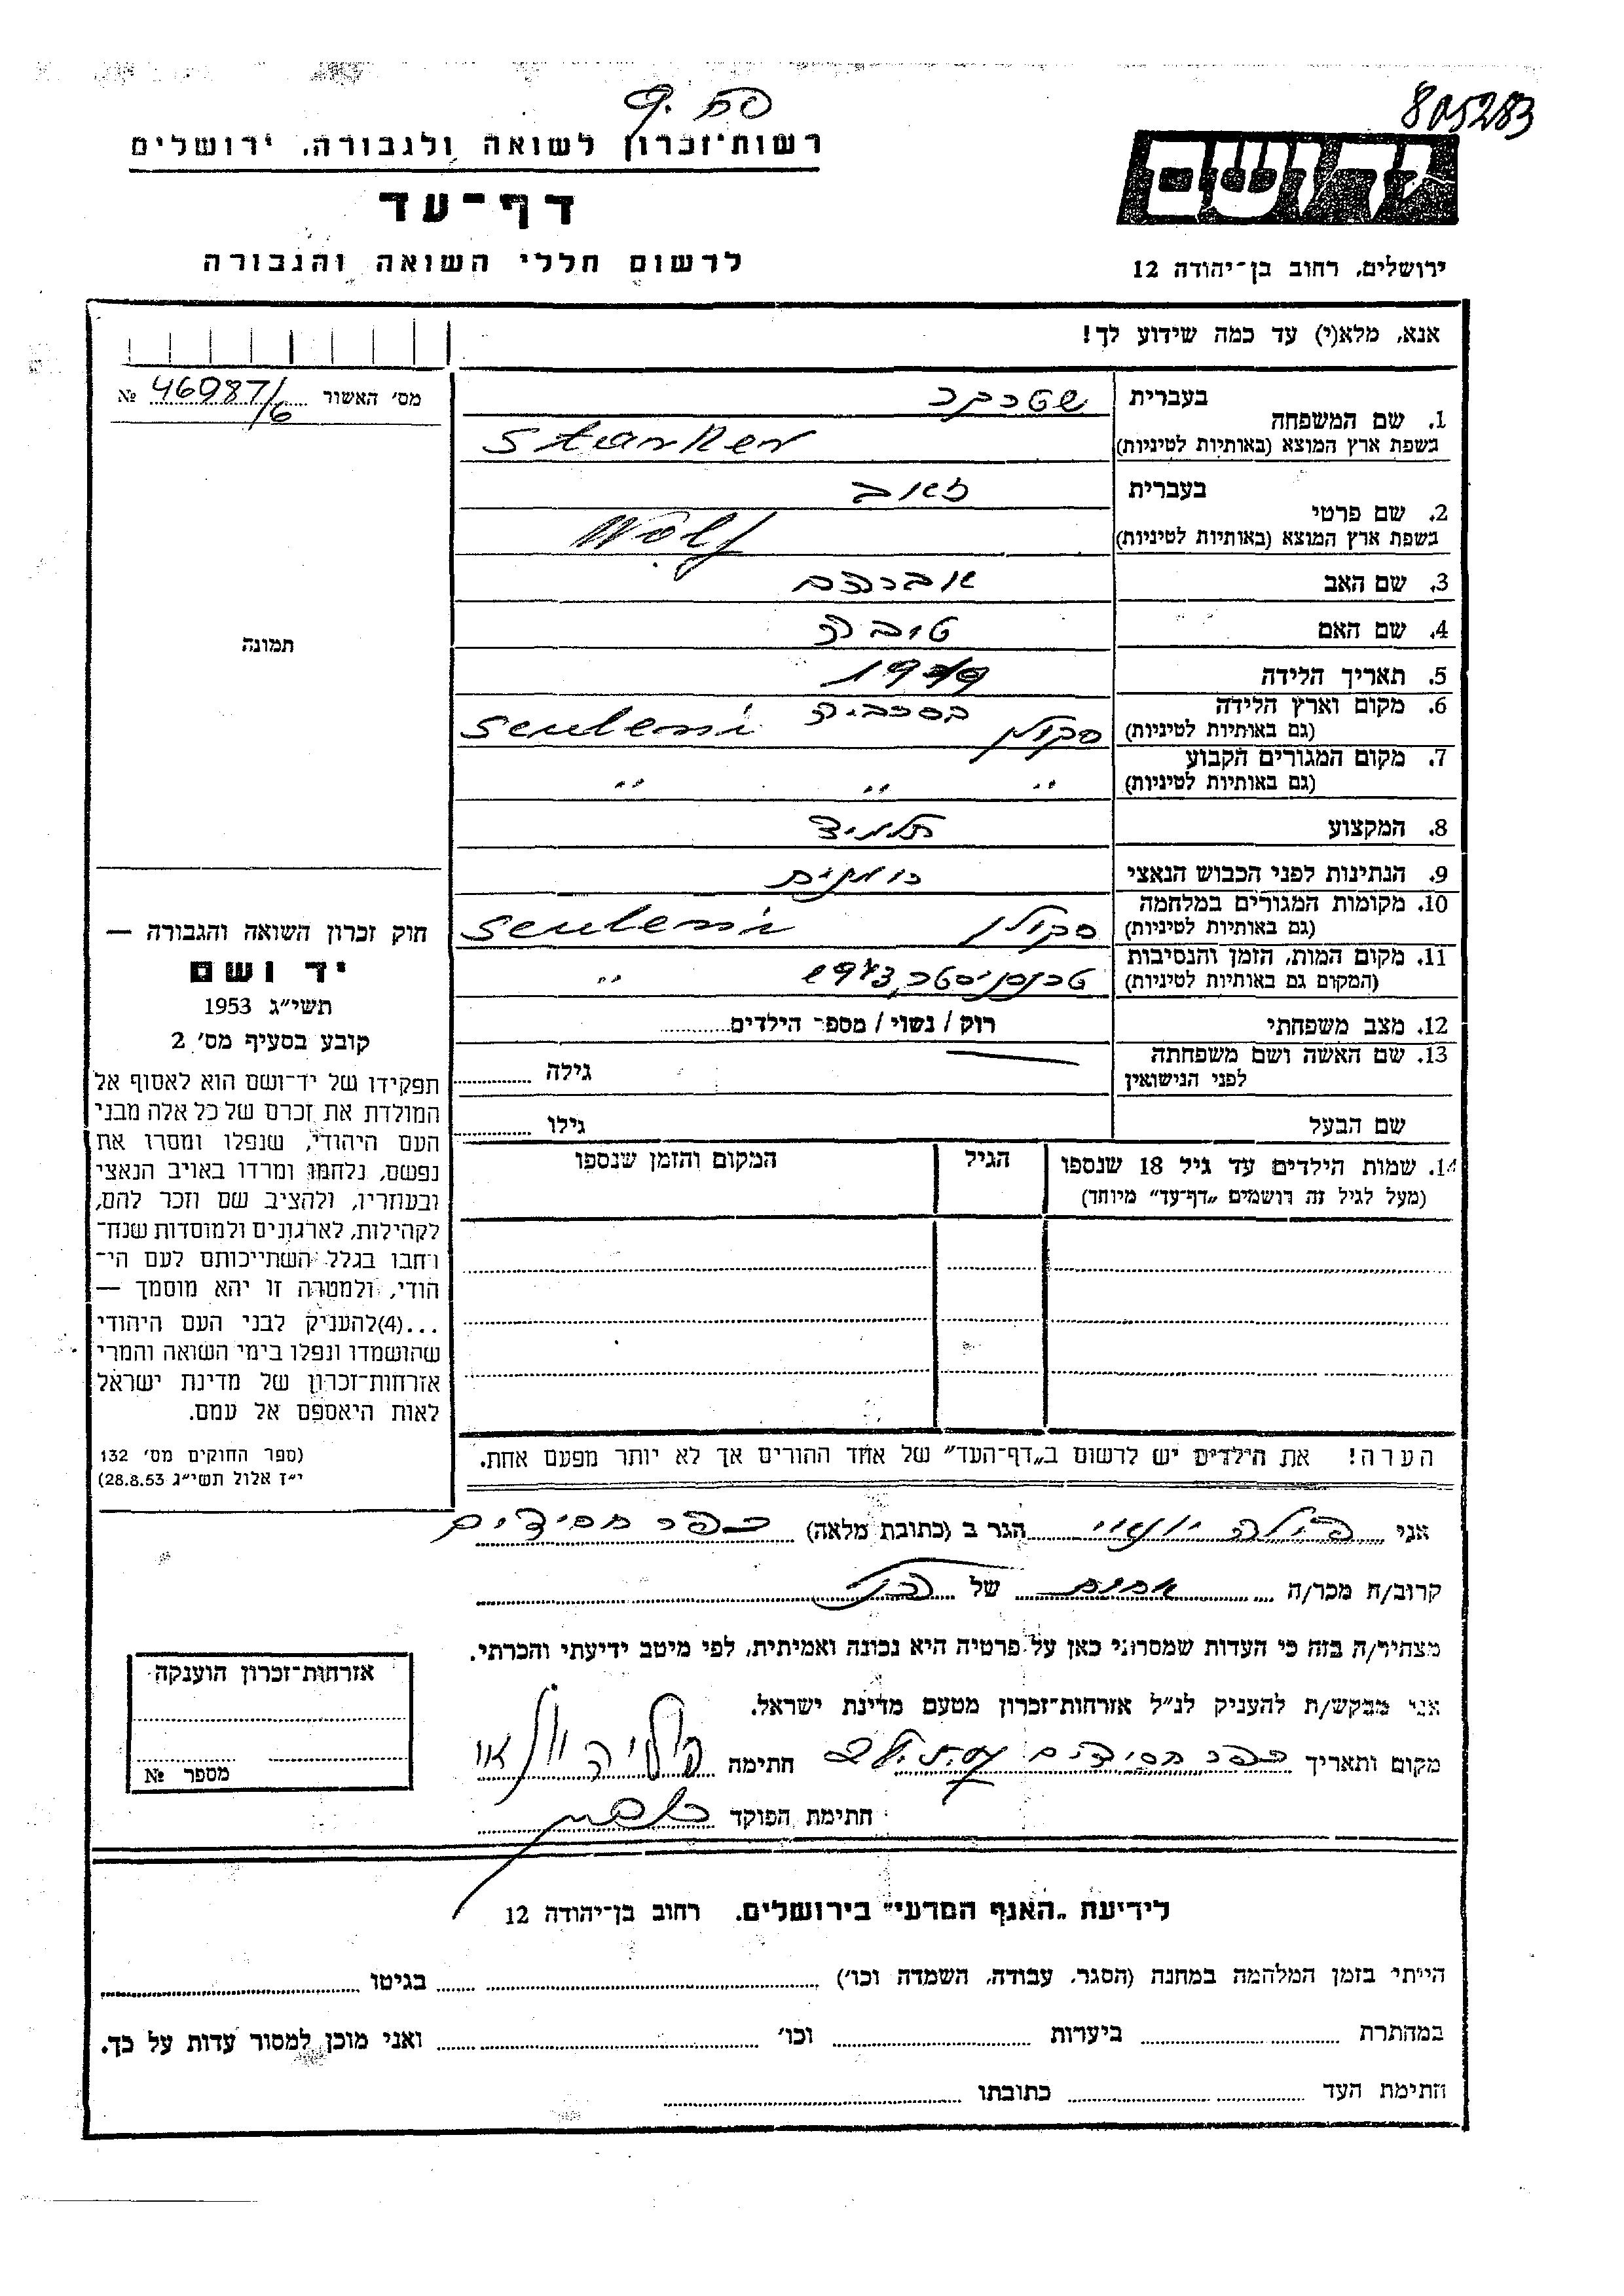 805283
רשות־זכרון לשואה ולגבורה, ירושלים
דף־עד
לרשום חללי השואה והגבורה
יד ושם
ירושלים, רחוב בן־יהודה 12
אנא, מלא(י) עד כמה שידוע לך!
מס׳ האשור 46987/6 №
תמונה
1. שם המשפחה
בעברית שטרקר
בשפת ארץ המוצא (באותיות לטיניות) Starker
2. שם פרטי
בעברית זאב
בשפת ארץ המוצא (באותיות לטיניות) Wolf
3. שם האב אברהם
4. שם האם טובה
5. תאריך הלידה
6. מקום וארץ הלידה
(גם באותיות לטיניות) סקולן בסרביה Sculeni
7. מקום המגורים הקבוע
(גם באותיות לטיניות) " " "
8. המקצוע תלמיד
9. הנתינות לפני הכבוש הנאצי
10. מקומות המגורים במלחמה
(גם באותיות לטיניות) סקולן Sculeni
11. מקום המות, הזמן והנסיבות
(המקום גם באותיות לטיניות) "
12. מצב משפחתי רוק / נשוי / מספר הילדים
13. שם האשה ושם משפחתה
לפני הנישואין גילה
שם הבעל גילו
14. שמות הילדים עד גיל 18 שנספו
(מעל לגיל זה רושמים „דף־עד" מיוחד)
הגיל
המקום והזמן שנספו
הערה! את הילדים יש לרשום ב„דף־העד" של אחד ההורים אך לא יותר מפעם אחת.
חוק זכרון השואה והגבורה —
יד ושם
תשי״ג 1953
קובע בסעיף מס׳ 2
תפקידו של יד־ושם הוא לאסוף אל
המולדת את זכרם של כל אלה מבני
העם היהודי, שנפלו ומסרו את
נפשם, נלחמו ומרדו באויב הנאצי
ובעוזריו, ולהציב שם וזכר להם,
לקהילות, לארגונים ולמוסדות שנח־
רבו בגלל השתייכותם לעם הי־
הודי, ולמטרה זו יהא מוסמך —
...(4)להעניק לבני העם היהודי
שהושמדו ונפלו בימי השואה והמרי
אזרחות־זכרון של מדינת ישראל
לאות היאספם אל עמם.
(ספר החוקים מס׳ 132
י״ז אלול תשי״ג 28.8.53)
אני הגר ב (כתובת מלאה) כפר חסידים
קרוב/ה מכר/ה של
מצהיר/ה בזה כי העדות שמסרתי כאן על פרטיה היא נכונה ואמיתית, לפי מיטב ידיעתי והכרתי.
אני מבקש/ת להעניק לנ״ל אזרחות־זכרון מטעם מדינת ישראל.
מקום ותאריך כפר חסידים חתימה
חתימת הפוקד
אזרחות־זכרון הוענקה
מספר №
לידיעת „האגף המדעי" בירושלים. רחוב בן־יהודה 12
הייתי בזמן המלהמה במחנה (הסגר, עבודה, השמדה וכו׳) בגיטו
במהתרת ביערות וכו׳ ואני מוכן למסור עדות על כך.
התימת העד כתובתו